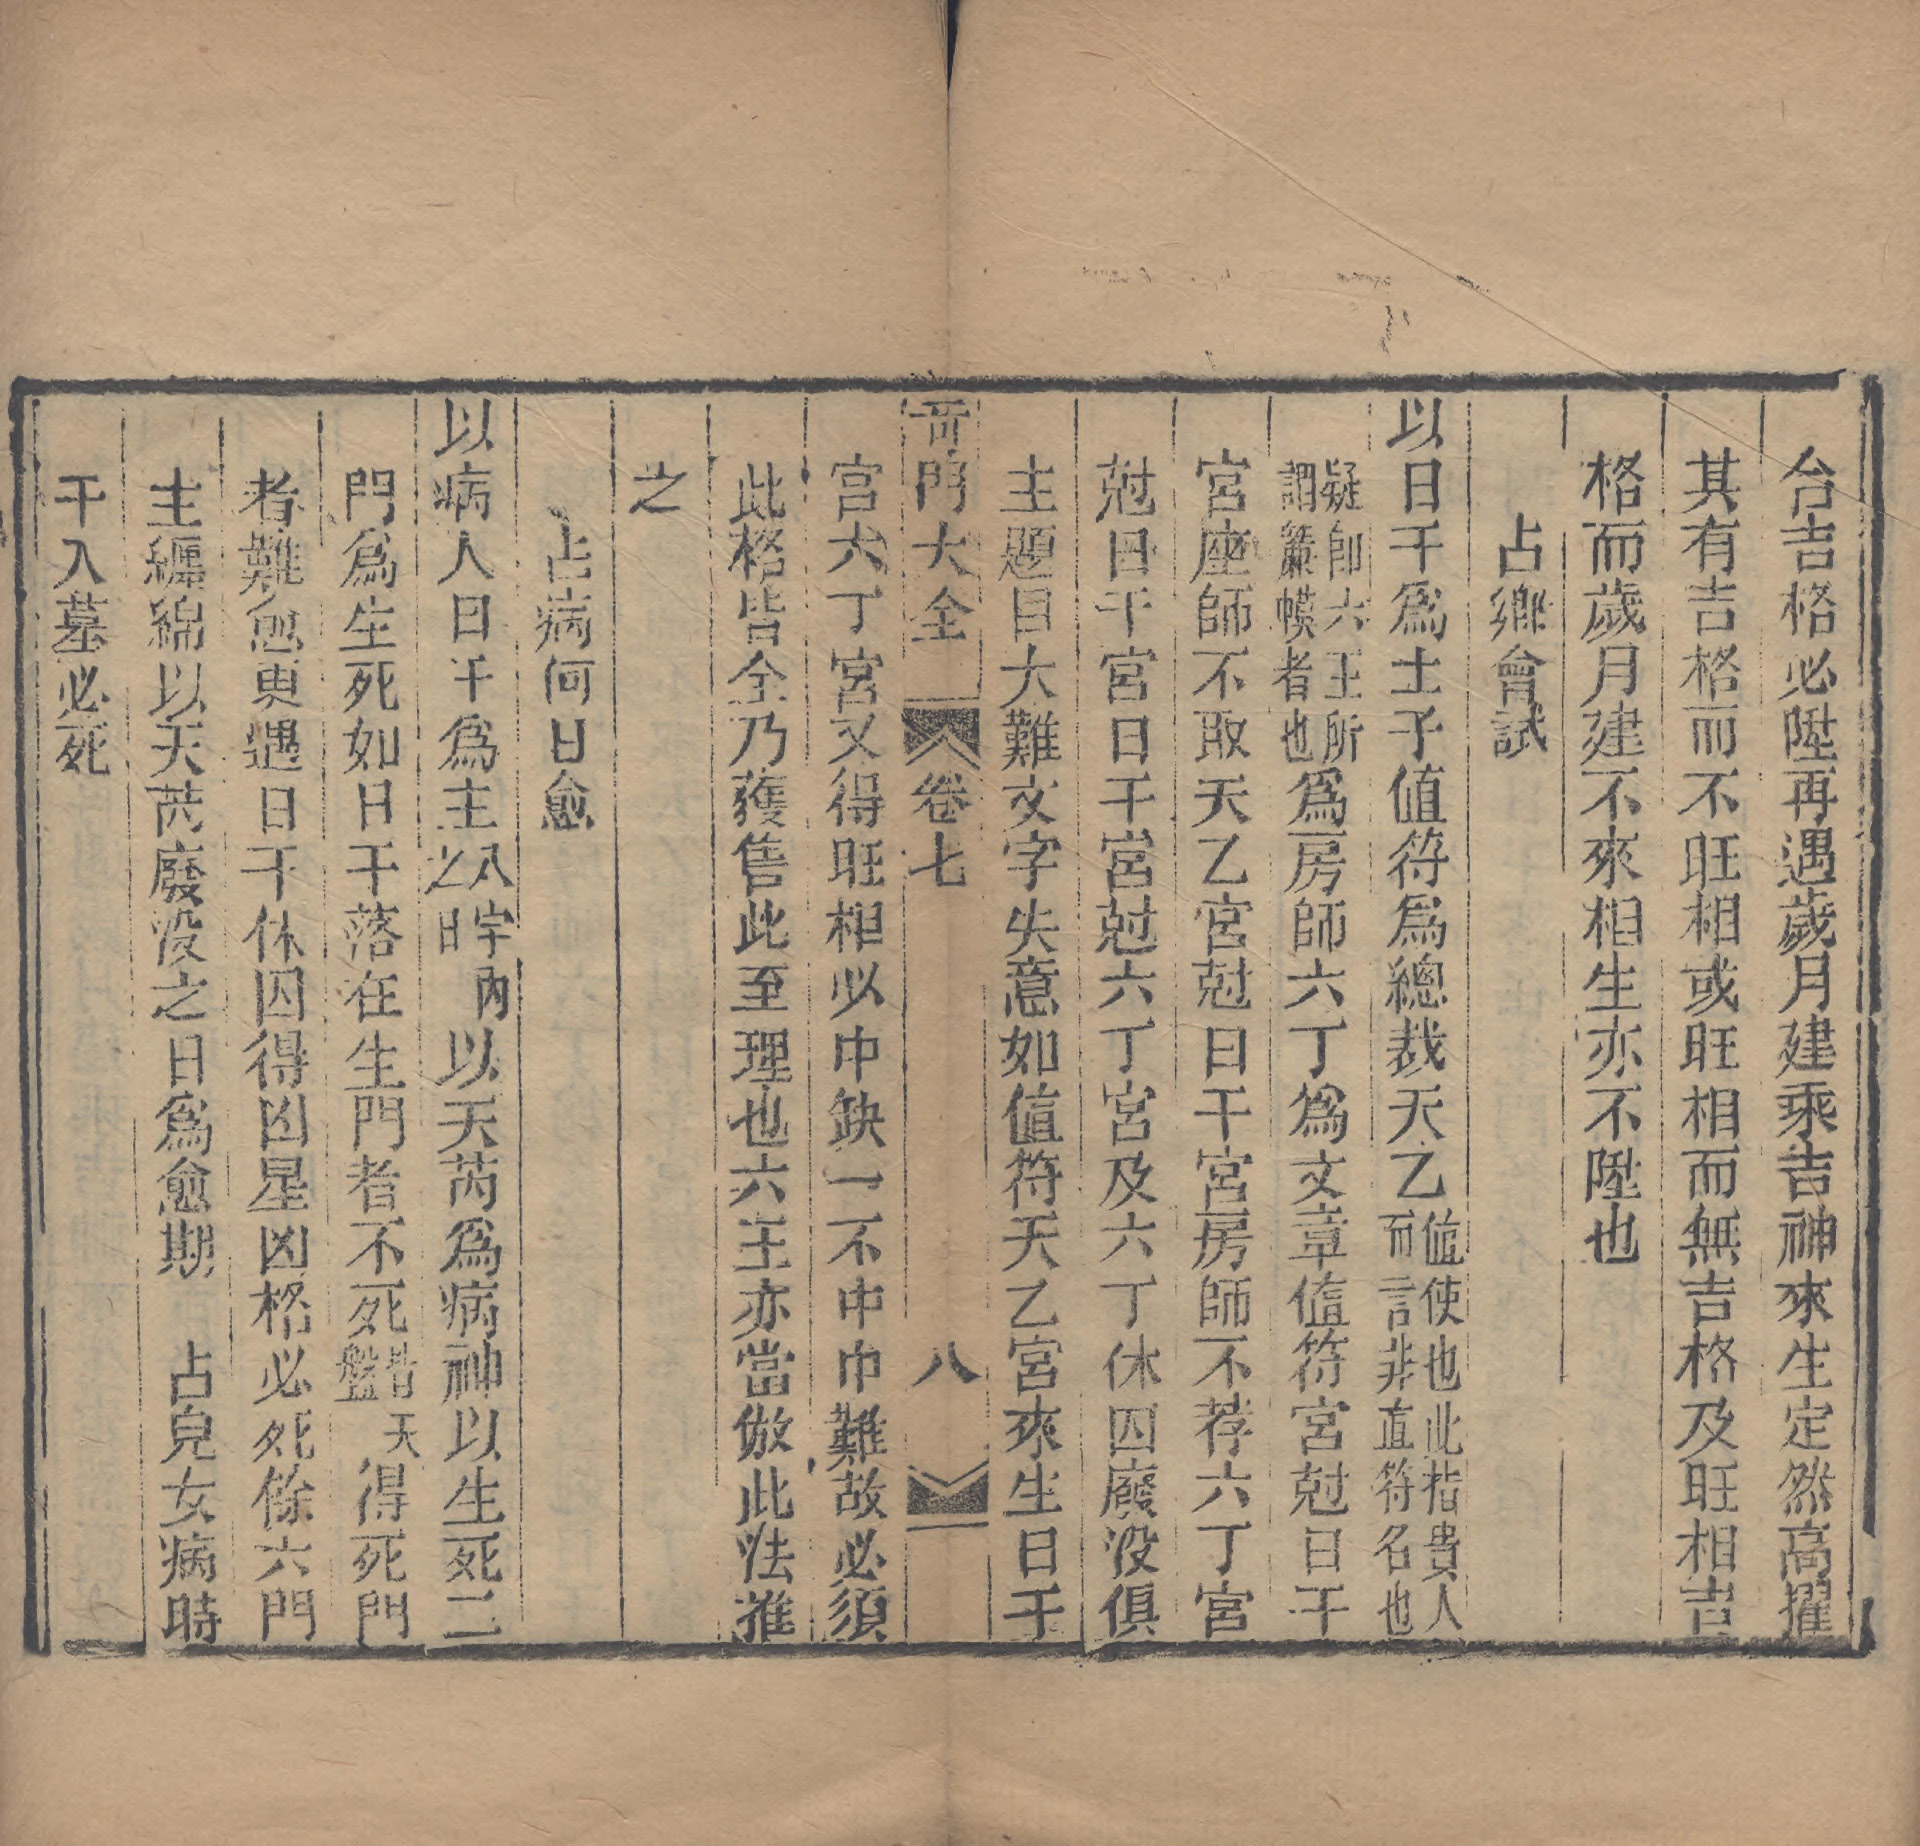 合吉格必陞再遇歲月建乘吉神來生定然高擢
其有吉格而不旺相或旺相而無吉格及旺相吉
格而歲月建不來相生亦不陞也
占鄉會試
以日干爲士子值符爲總裁天乙值使也此指貴人而言非直符名也
疑卽六壬所謂簾幙者也爲房師六丁爲文章值符宮尅日干
宮座師不取天乙宮尅日干宮房師不荐六丁宮
尅日干宮日干宮尅六丁宮及六丁休囚廢沒俱
主題目大難文字失意如值符天乙宮來生日干
奇門大全 卷七 八
宮六丁宮又得旺相必中缺一不中中難故必須
此格皆全乃獲售此至理也六壬亦當倣此法推
之
占病何日愈
以病人日干爲主八字內之日以天芮爲病神以生死二
門爲生死如日干落在生門者不死皆天盤得死門
者難愈更遇日干休囚得凶星凶格必死餘六門
主纏綿以天芮廢沒之日爲愈期 占兒女病時
干入墓必死